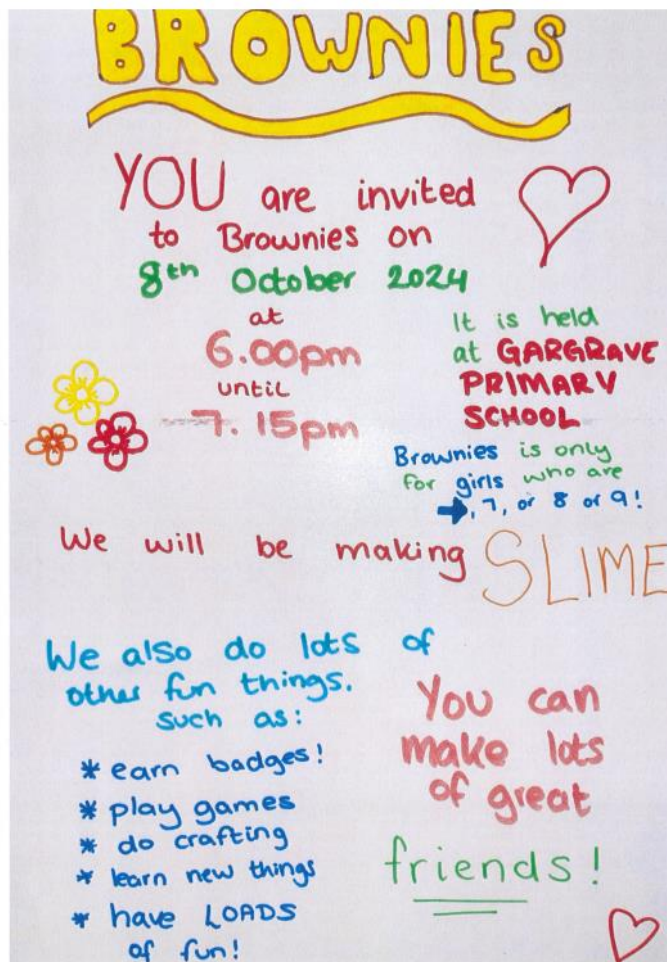 BROWNIES
YOU are invited
to Brownies on
8th October 2024
at
6.00pm
until
7.15pm
It is held
at GARGRAVE
PRIMARY
SCHOOL
Brownies is only
for girls who are
, 7, or 8 or 9!
We will be making SLIME
We also do lots of
other fun things.
such as:
* earn badges!
* play games
* do crafting
* learn new things
* have LOADS
of fun!
You can
make lots
of great
friends!